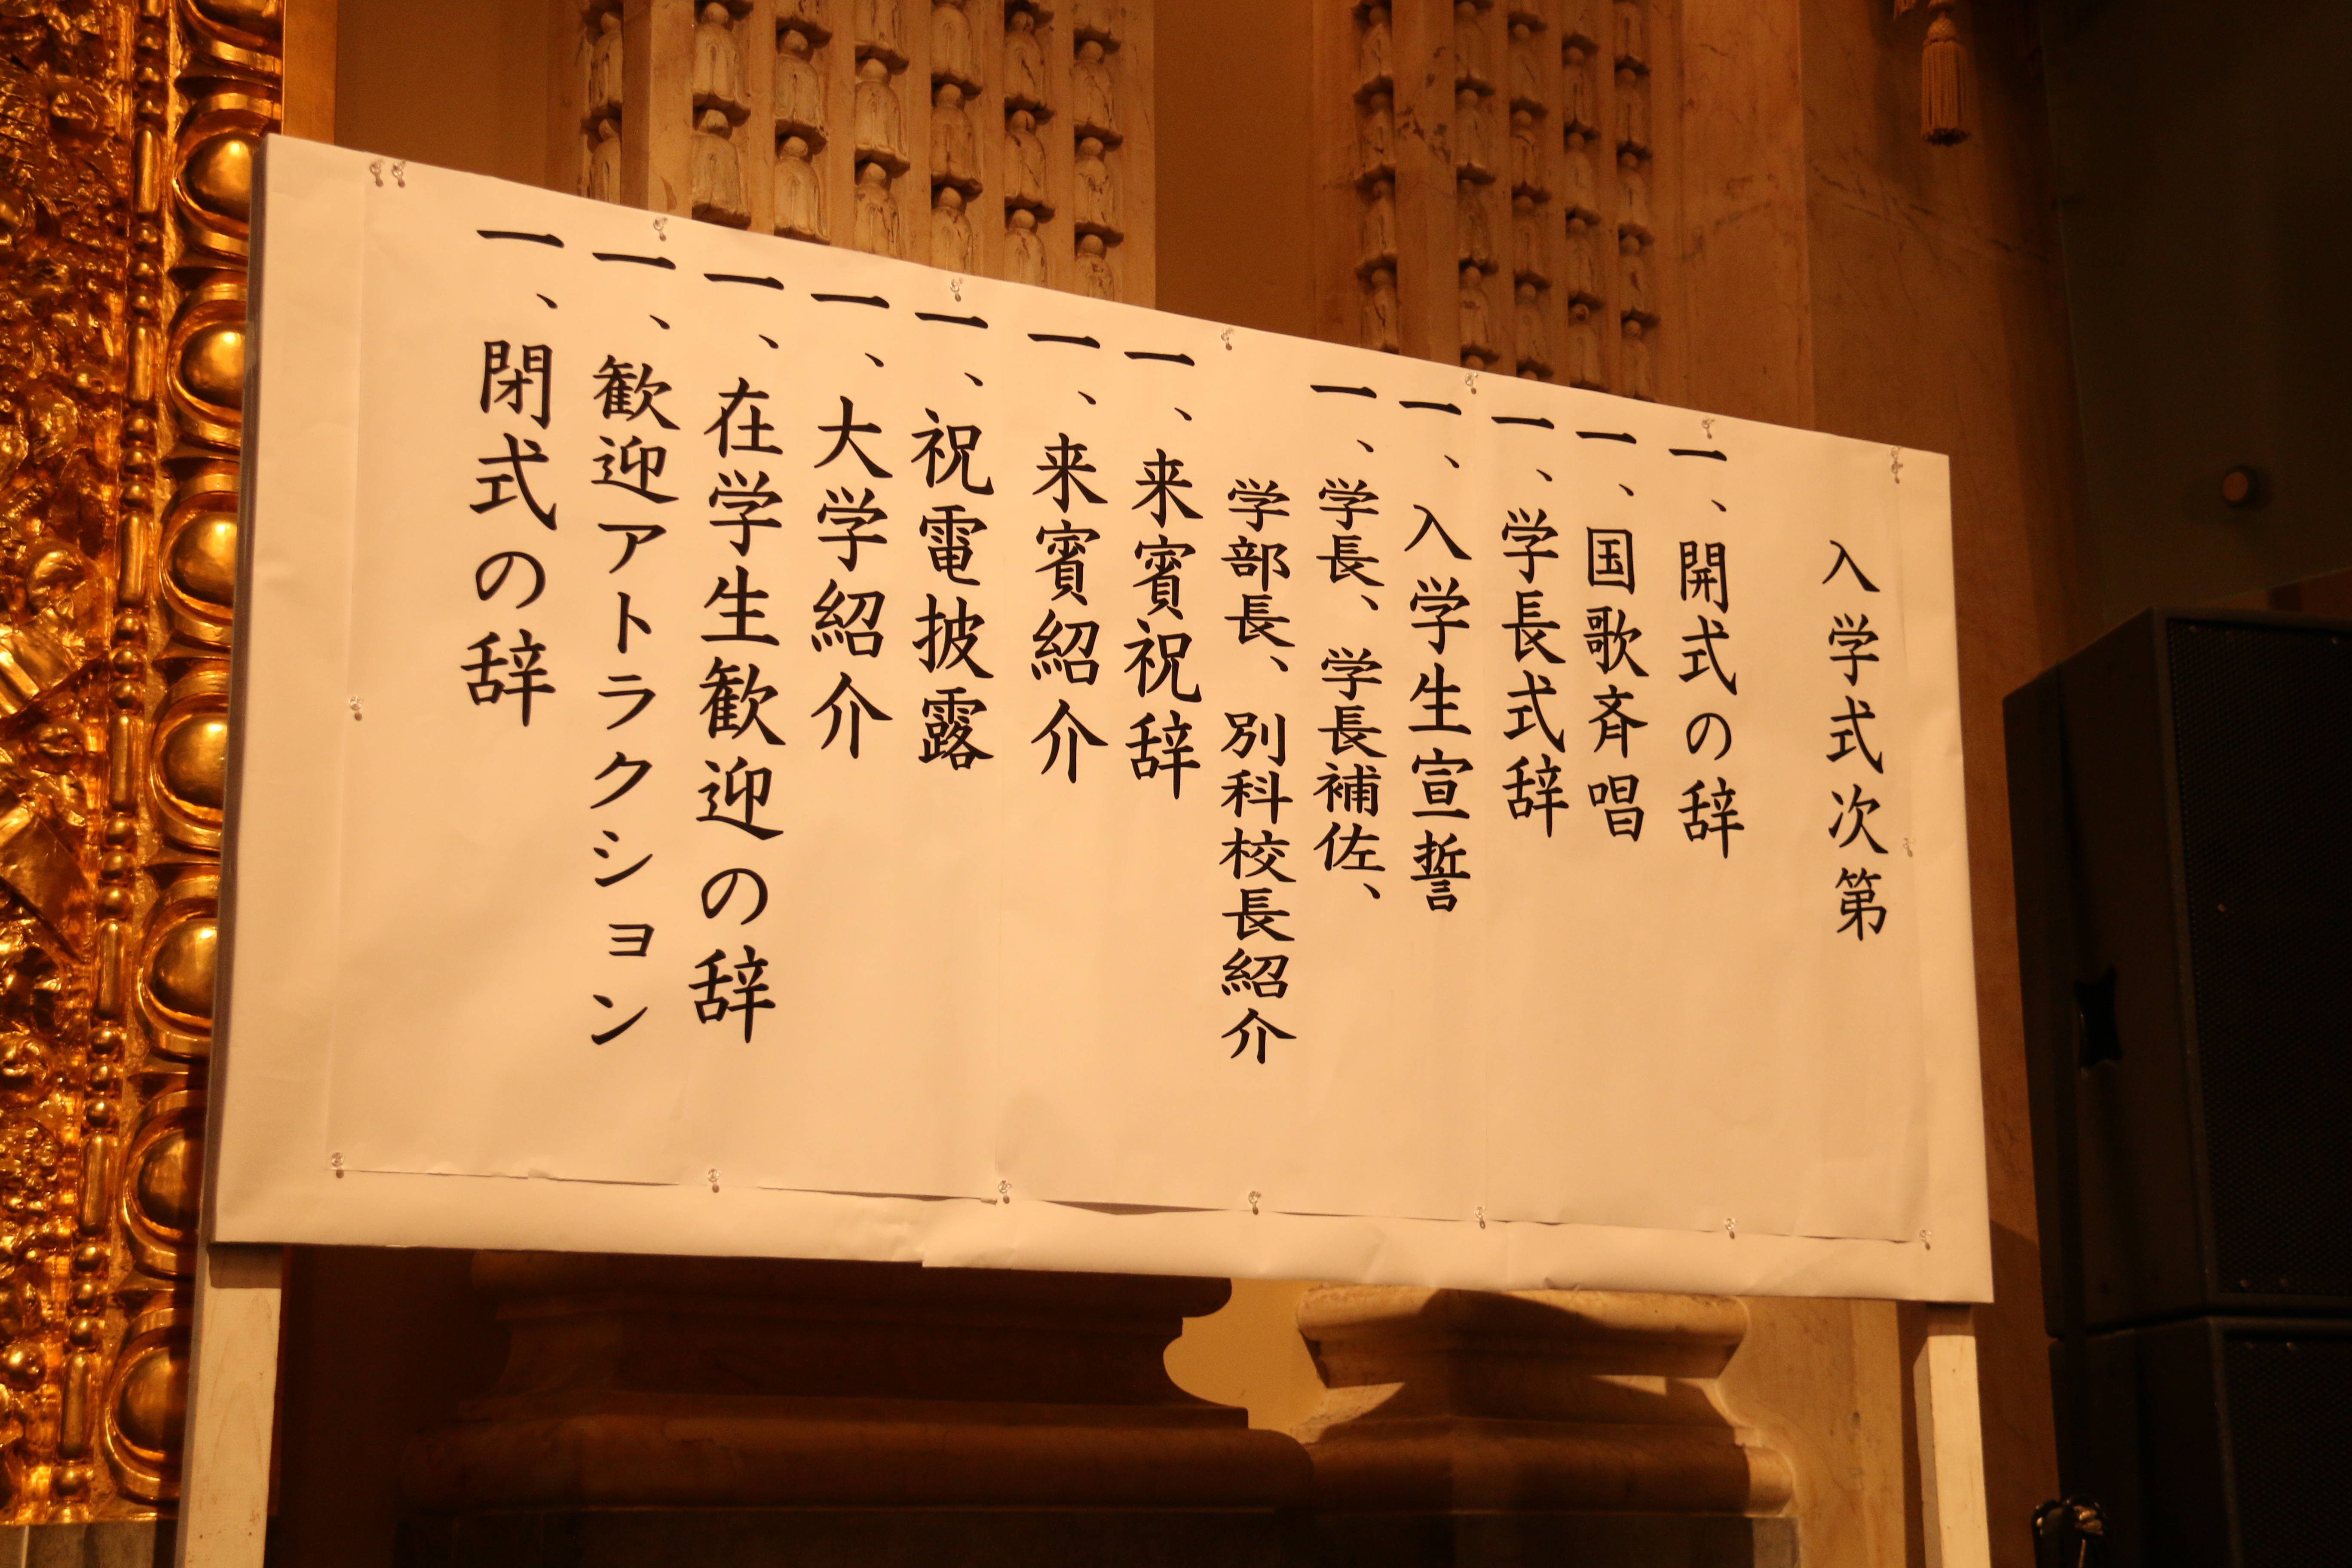 入学式次第
一、開式の辞
一、国歌斉唱
一、学長式辞
一、入学生宣誓
一、学長、学長補佐、
学部長、別科校長紹介
一、来賓祝辞
一、来賓紹介
一、祝電披露
一、大学紹介
一、在学生歓迎の辞
一、歓迎アトラクション
一、閉式の辞